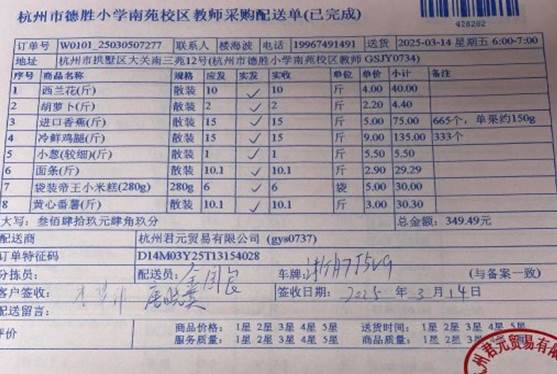 杭州市德胜小学南苑校区教师采购配送单(已完成)
428262
订单号 W0101_25030507277 联系人 楼海波 电话 19967491491 送货 2025-03-14 星期五 6:00-7:00
地址 杭州市拱墅区大关南三苑12号(杭州市德胜小学南苑校区教师 GSJY0734)
序号 商品名称 规格 应发 实发 实收 单位 单价 小计 备注
1 西兰花(斤) 散装 10 ✓ 10 斤 4.00 40.00
2 胡萝卜(斤) 散装 2 ✓ 2 斤 2.20 4.40
3 进口香蕉(斤) 散装 15 ✓ 15 斤 5.00 75.00 665个,单果约150g
4 冷鲜鸡腿(斤) 散装 15 ✓ 15 斤 9.00 135.00 333个
5 小葱(较细)(斤) 散装 1 ✓ 1 斤 5.50 5.50
6 面条(斤) 散装 10.1 ✓ 10.1 斤 2.90 29.29
7 袋装帝王小米糕(280g) 280g 6 ✓ 6 袋 5.00 30.00
8 黄心番薯(斤) 散装 10.1 ✓ 10.1 斤 3.00 30.30
大写:叁佰肆拾玖元肆角玖分 总金额:349.49元
配送商 杭州君元贸易有限公司 (gys0737)
订单特征码 D14M03Y25T13154028
分拣员: 配送员: 车牌: (与备案一致)
客户签收: 签收日期: 2025 年 3 月 14 日
配送留言:
评价 商品价格: 1星 2星 3星 4星 5星 送货时间: 1星 2星 3星 4星 5星
服务质量: 1星 2星 3星 4星 5星 商品质量: 1星 2星 3星 4星 5星
州君元贸易有限